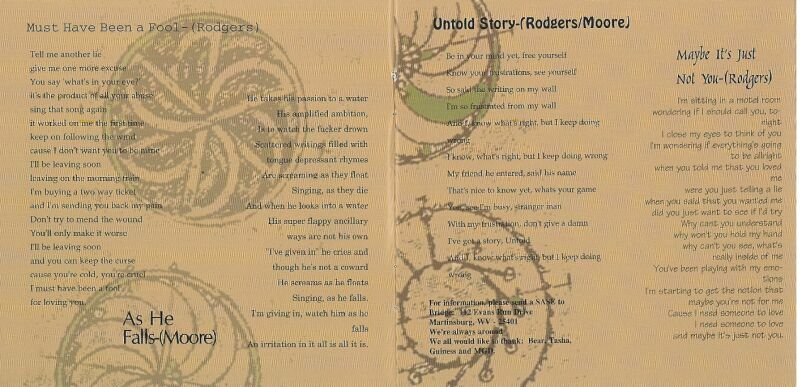 Must Have Been a Fool-(Rodgers)
Tell me another lie
give me one more excuse
You say 'what's in your eye?'
it's the product of all your abuse
sing that song again
it worked on me the first time
keep on following the wind
cause I don't want you to be mine
I'll be leaving soon
leaving on the morning train
I'm buying a two way ticket
and I'm sending you back my pain
Don't try to mend the wound
You'll only make it worse
I'll be leaving soon
and you can keep the curse
cause you're cold, you're cruel
I must have been a fool
for loving you.
As He
Falls-(Moore)
He takes his passion to a water
His amplified ambition,
Is to watch the fucker drown
Scattered writings filled with
tongue depressant rhymes
Are screaming as they float
Singing, as they die
And when he looks into a water
His super flappy ancillary
ways are not his own
"I've given in" he cries and
though he's not a coward
He screams as he floats
Singing, as he falls.
I'm giving in, watch him as he
falls
An irritation in it all is all it is.
Untold Story-(Rodgers/Moore)
Be in your mind yet, free yourself
Know your frustrations, see yourself
So said the writing on my wall
I'm so frustrated from my wall
And I know what's right, but I keep doing
wrong
I know, what's right, but I keep doing wrong
My friend he entered, said his name
That's nice to know yet, whats your game
You, see I'm busy, stranger man
With my frustration, don't give a damn
I've got a story, Untold
And I know what's right, but I keep doing
wrong
For information, please send a SASE to
Bridge: 112 Evans Run Drive
Martinsburg, WV - 25401
We're always around
We all would like to thank: Bear, Tasha,
Guiness and MGD.
Maybe It's Just
Not You-(Rodgers)
I'm sitting in a motel room
wondering if I should call you, to-
night
I close my eyes to think of you
I'm wondering if everything's going
to be allright
when you told me that you loved
me
were you just telling a lie
when you said that you wanted me
did you just want to see if I'd try
Why cant you understand
why won't you hold my hand
why can't you see, what's
really inside of me
You've been playing with my emo-
tions
I'm starting to get the notion that
maybe you're not for me
Cause I need someone to love
I need someone to love
and maybe it's just not you.